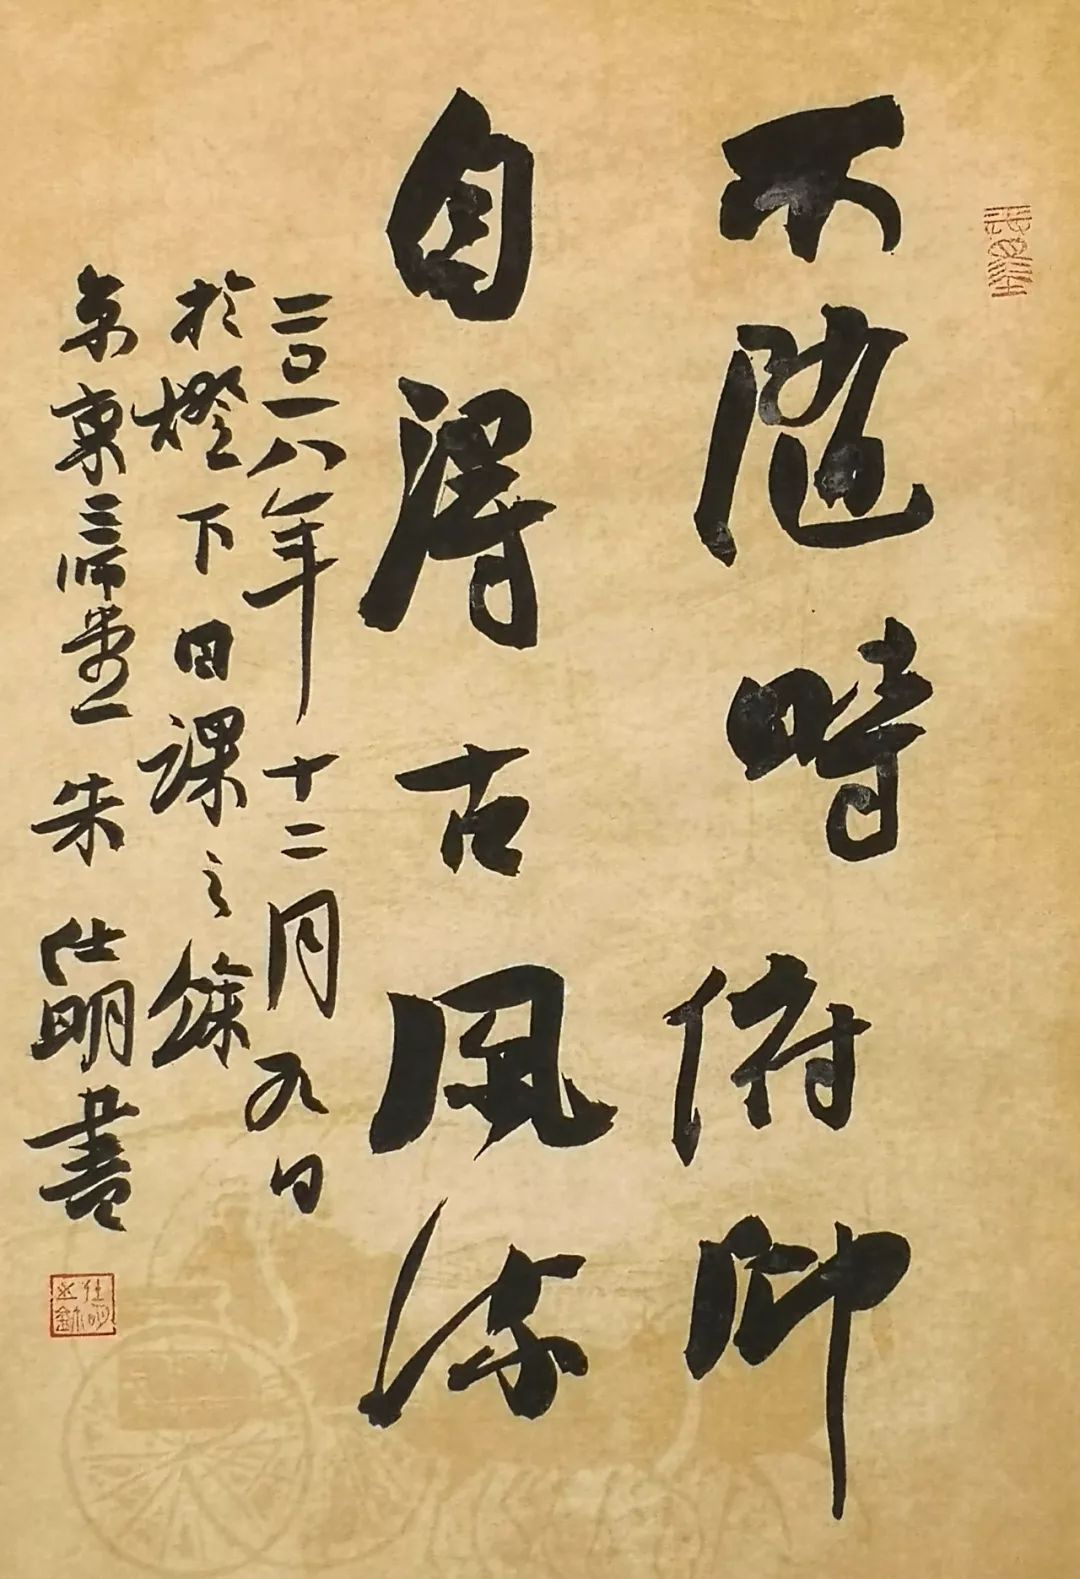 不随時俯仰
自得古風流
二〇一八年十二月九日
於燈下日課之餘
京東三希堂朱仕明書
仕明之鉨